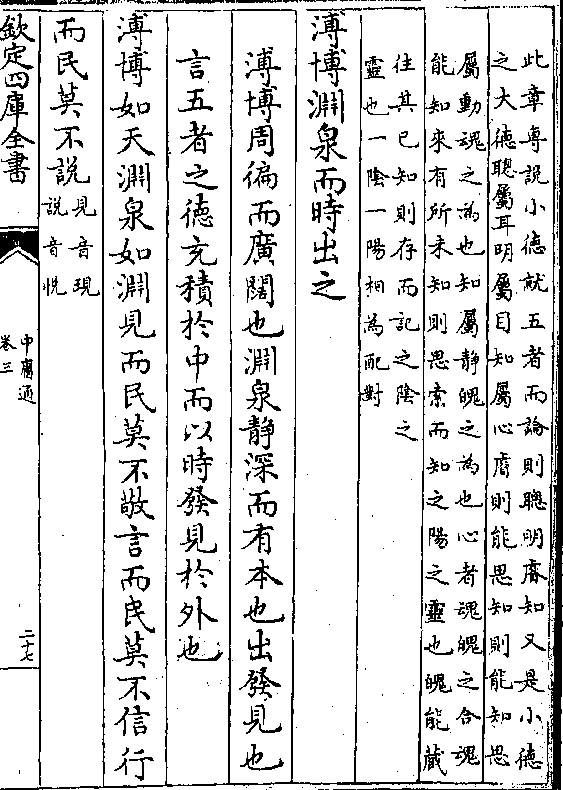 此章專說小德就五者而論則聰明睿知又是小德
之大德聰屬耳明屬目知屬心睿則能思知則能知思
屬動魂之為也知屬静魄之為也心者魂魄之合魂
能知來有所未知則思索而知之陽之靈也魄能藏
往其已知則存而記之陰之
靈也一陰一陽相為配對
溥博淵泉而時出之
溥博周徧而廣闊也淵泉静深而有本也出發見也
言五者之德充積於中而以時發見於外也
溥博如天淵泉如淵見而民莫不敬言而民莫不信行
而民莫不說見音現
說音悅
欽定四庫全書
中庸通
卷三
二十七